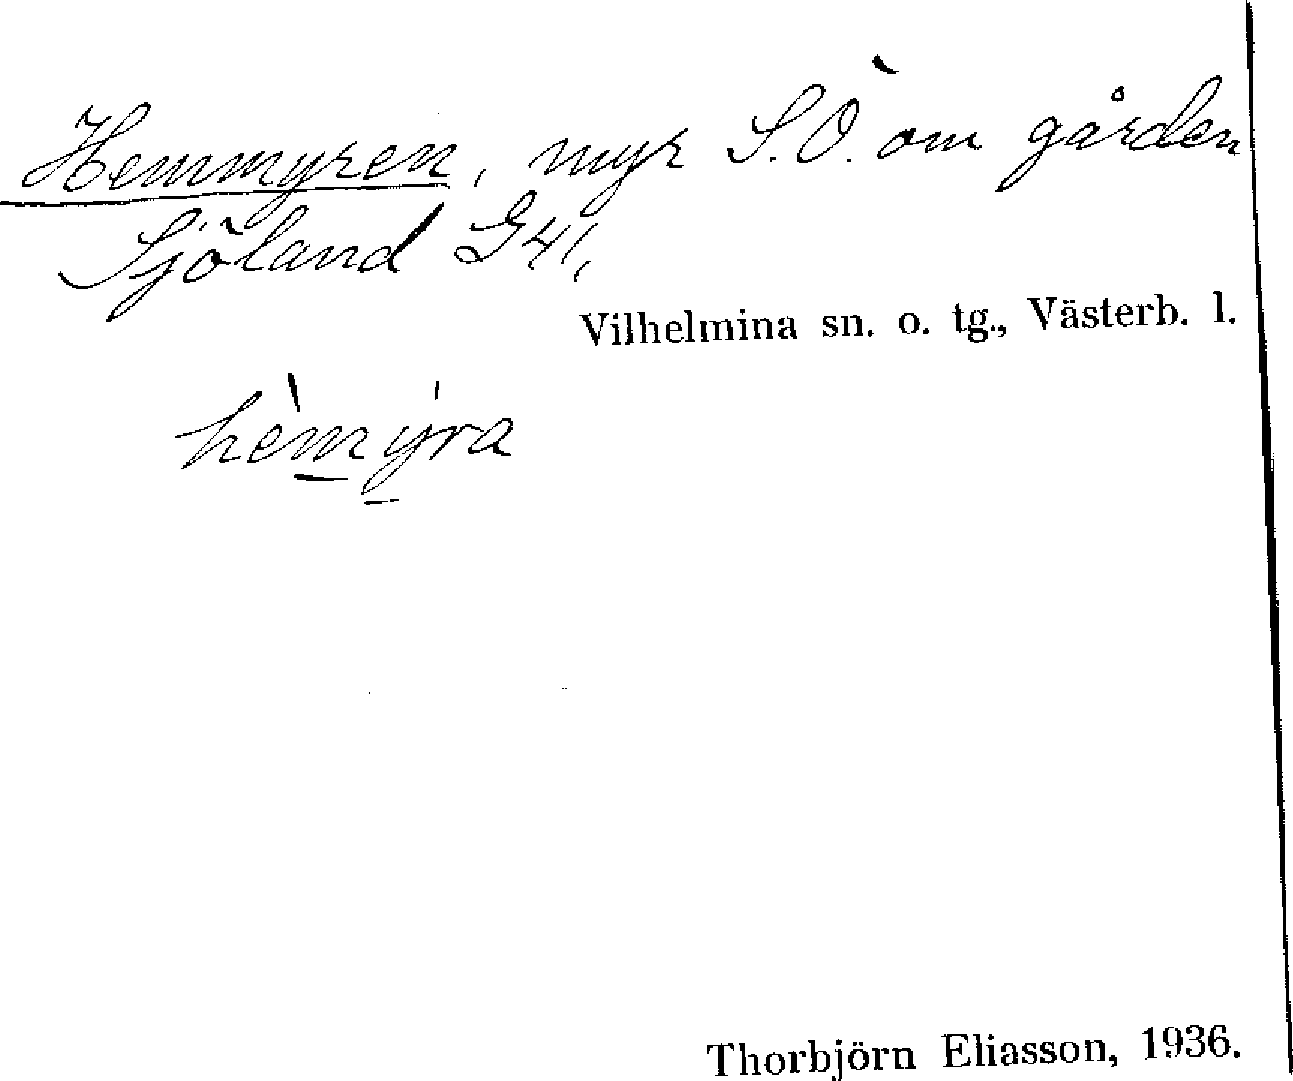 Hemmyren, myr S.Ö. om gården
Sjöland G41,
Vilhelmina sn. o. tg., Västerb. l.
hèmýra
Thorbjörn Eliasson, 1936.